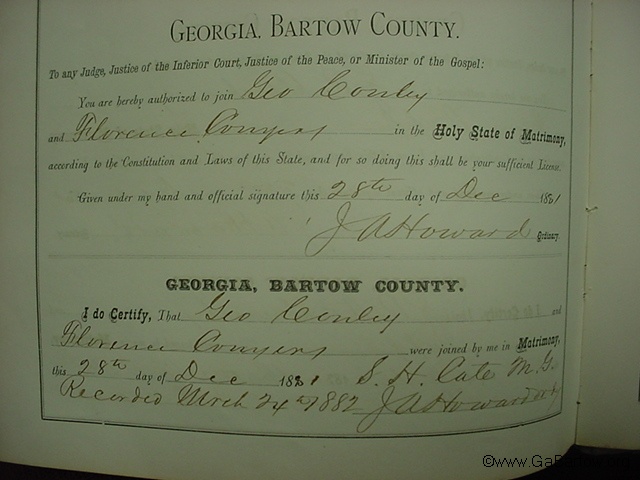 GEORGIA, BARTOW COUNTY.
To any Judge, Justice of the Inferior Court, Justice of the Peace, or Minister of the Gospel:
You are hereby authorized to join Geo Conley
and Florence Conyers in the Holy State of Matrimony,
according to the Constitution and Laws of this State, and for so doing this shall be your sufficient License.
Given under my hand and official signature this 28th day of Dec 1881
J A Howard Ordinary.
GEORGIA, BARTOW COUNTY.
I do Certify, That Geo Conley and
Florence Conyers were joined by me in Matrimony,
this 28th day of Dec 1881 S. H. Cate M. G.
Recorded Mrch 24th 1882 J A Howard
©www.Ga